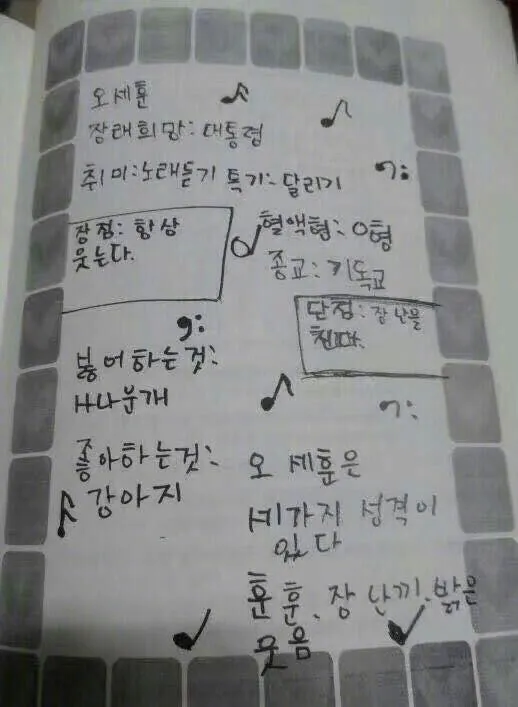 오세훈
장래희망: 대통령
취미:노래듣기 특기:달리기
장점: 항상
웃는다.
혈액형: O형
종교: 기독교
단점: 장난을
친다.
싫어하는것:
좋아하는것:
강아지
오 세훈은
세가지 성격이
있다
훈훈, 장난끼, 밝은
웃음